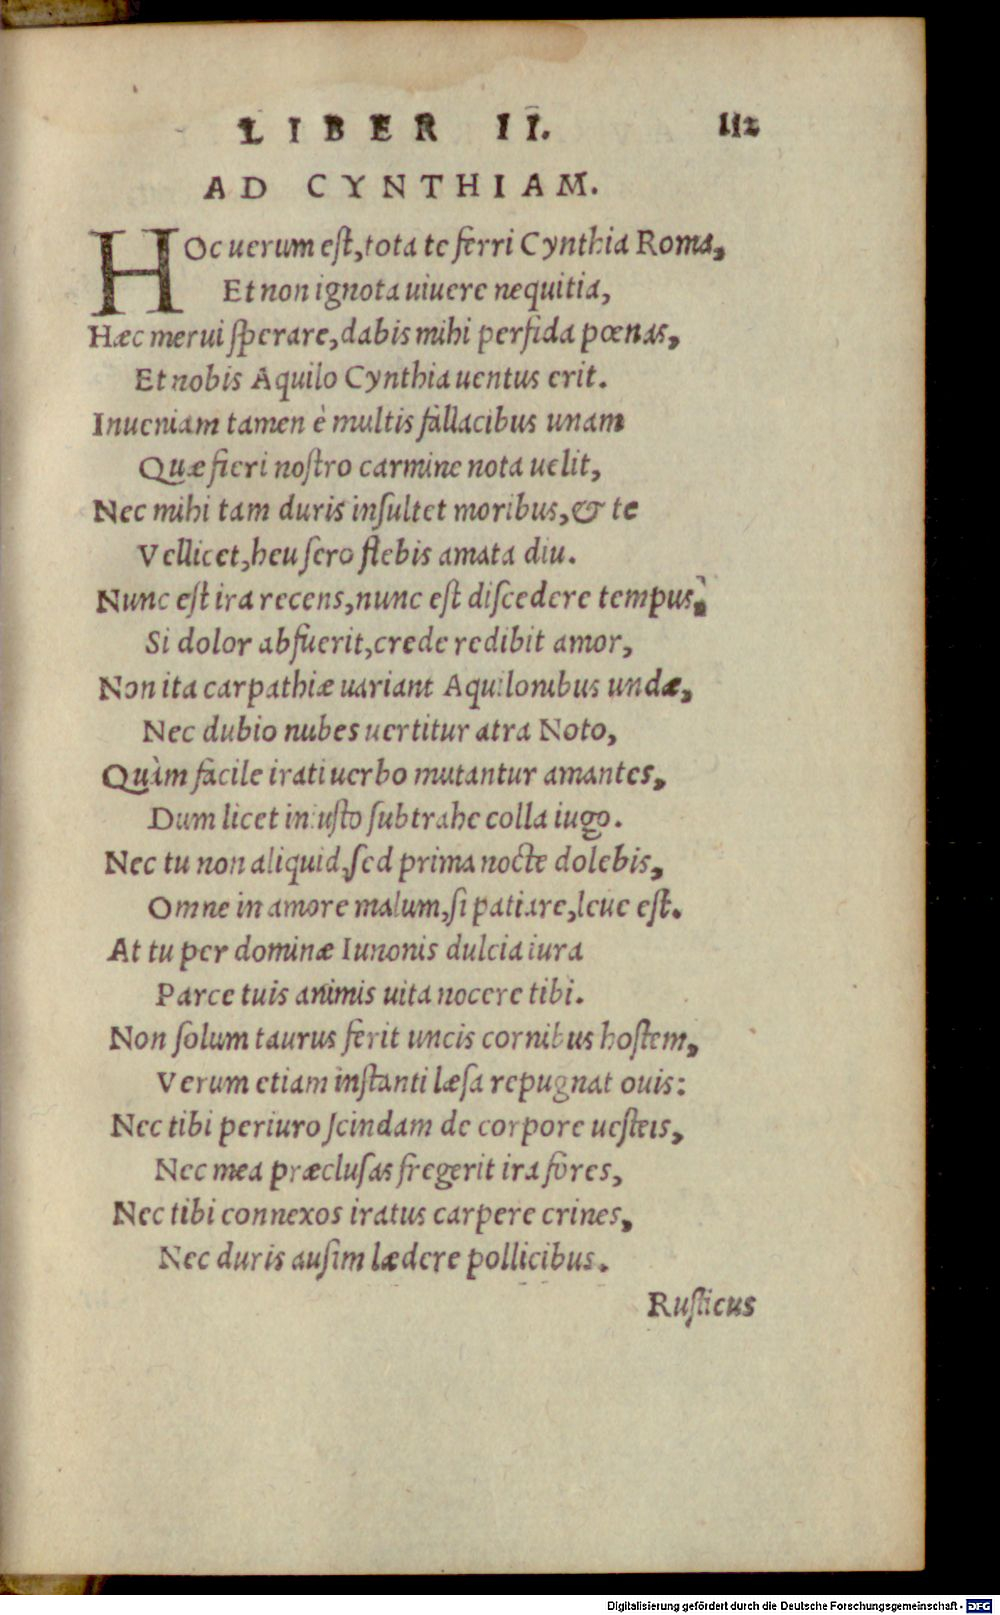 LIBER II. 112
AD CYNTHIAM.
HOc uerum est, tota te ferri Cynthia Roma,
Et non ignota uiuere nequitia,
Hæc merui sperare, dabis mihi perfida pœnas,
Et nobis Aquilo Cynthia uentus erit.
Inueniam tamen è multis fallacibus unam
Quæ fieri nostro carmine nota uelit,
Nec mihi tam duris insultet moribus, & te
Vellicet, heu sero flebis amata diu.
Nunc est ira recens, nunc est discedere tempus,
Si dolor abfuerit, crede redibit amor,
Non ita carpathiæ uariant Aquilonibus undæ,
Nec dubio nubes uertitur atra Noto,
Quàm facile irati uerbo mutantur amantes,
Dum licet iniusto subtrahe colla iugo.
Nec tu non aliquid, sed prima nocte dolebis,
Omne in amore malum, si patiare, leue est.
At tu per dominæ Iunonis dulcia iura
Parce tuis animis uita nocere tibi.
Non solum taurus ferit uncis cornibus hostem,
Verum etiam instanti læsa repugnat ouis:
Nec tibi periuro scindam de corpore uesteis,
Nec mea præclusas fregerit ira fores,
Nec tibi connexos iratus carpere crines,
Nec duris ausim lædere pollicibus.
Rusticus
Digitalisierung gefördert durch die Deutsche Forschungsgemeinschaft - DFG